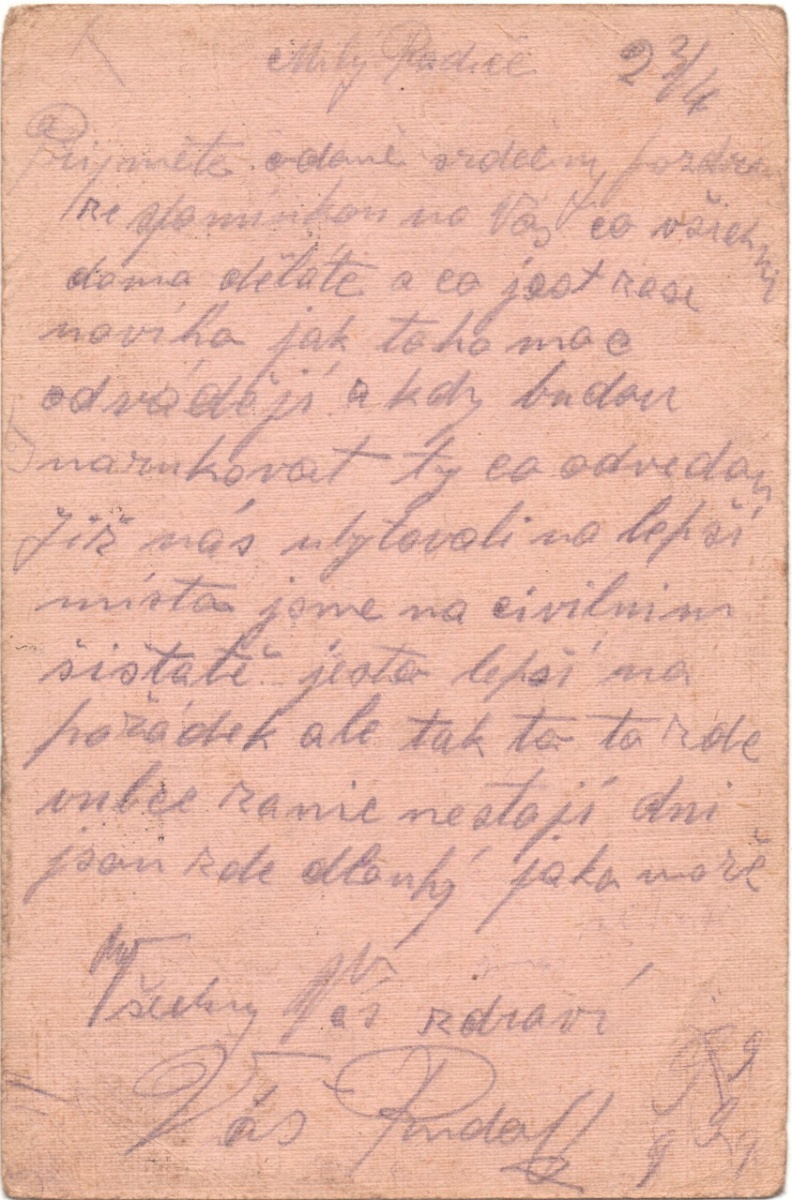 Milý Rodiče 23/4
Přijměte odemě srdečný pozdrav
ze spomínkou na Vás co všichni
doma děláte a co jest zase
novího jak toho moc
odvádějí a kdy budou
narukovat ty co odvedou
Již nás ubytovali na lepší
místo jsme na civilním
šištatě jesto lepší na
pořádek ale tak to to zde
vubce zanic nestojí dni
jsou zde dlouhý jako moře
Všechny Vás zdraví
Váš Rudolf